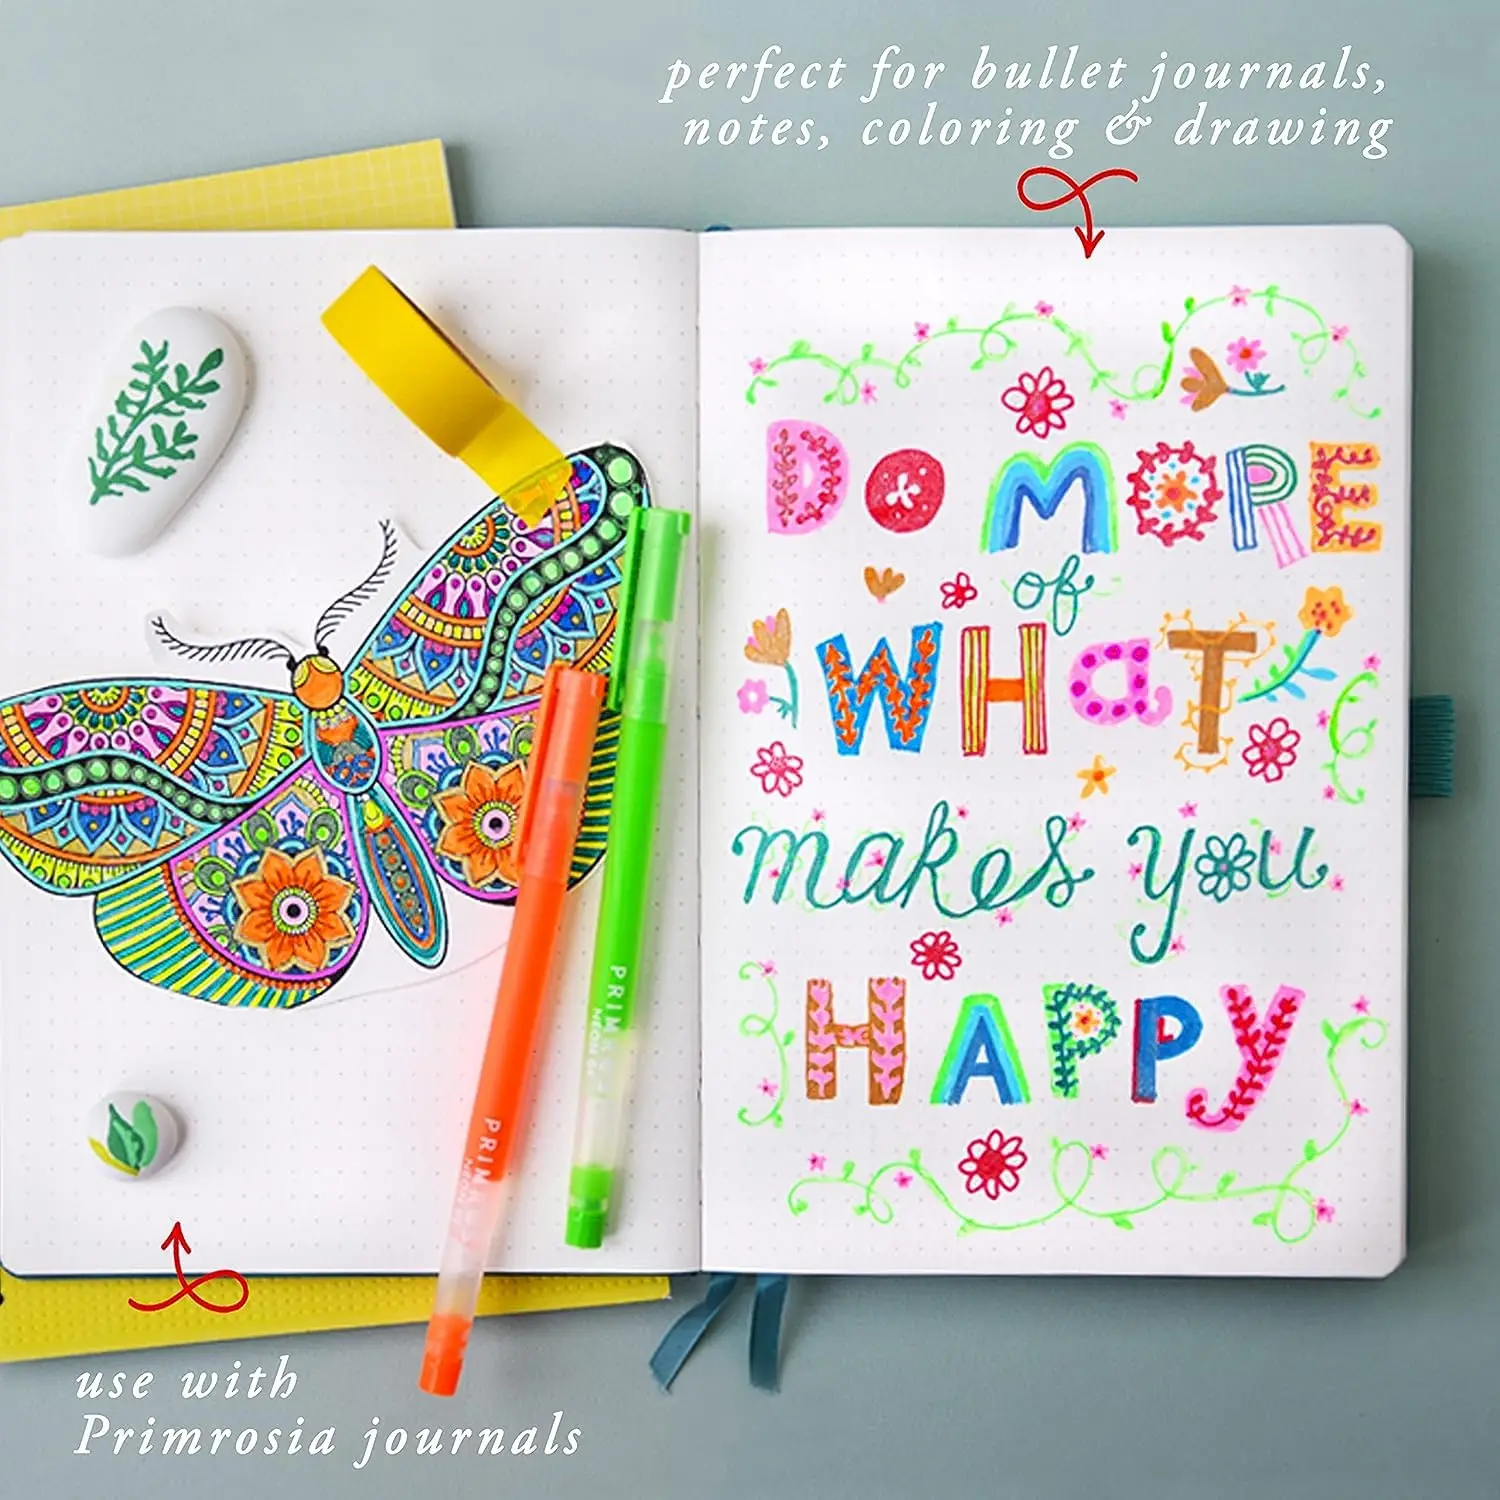 perfect for bullet journals,
notes, coloring & drawing
DO MORE
of
WHaT
makes you
HAPPY
PRIM
NEON
PRIM
use with
Primrosia journals